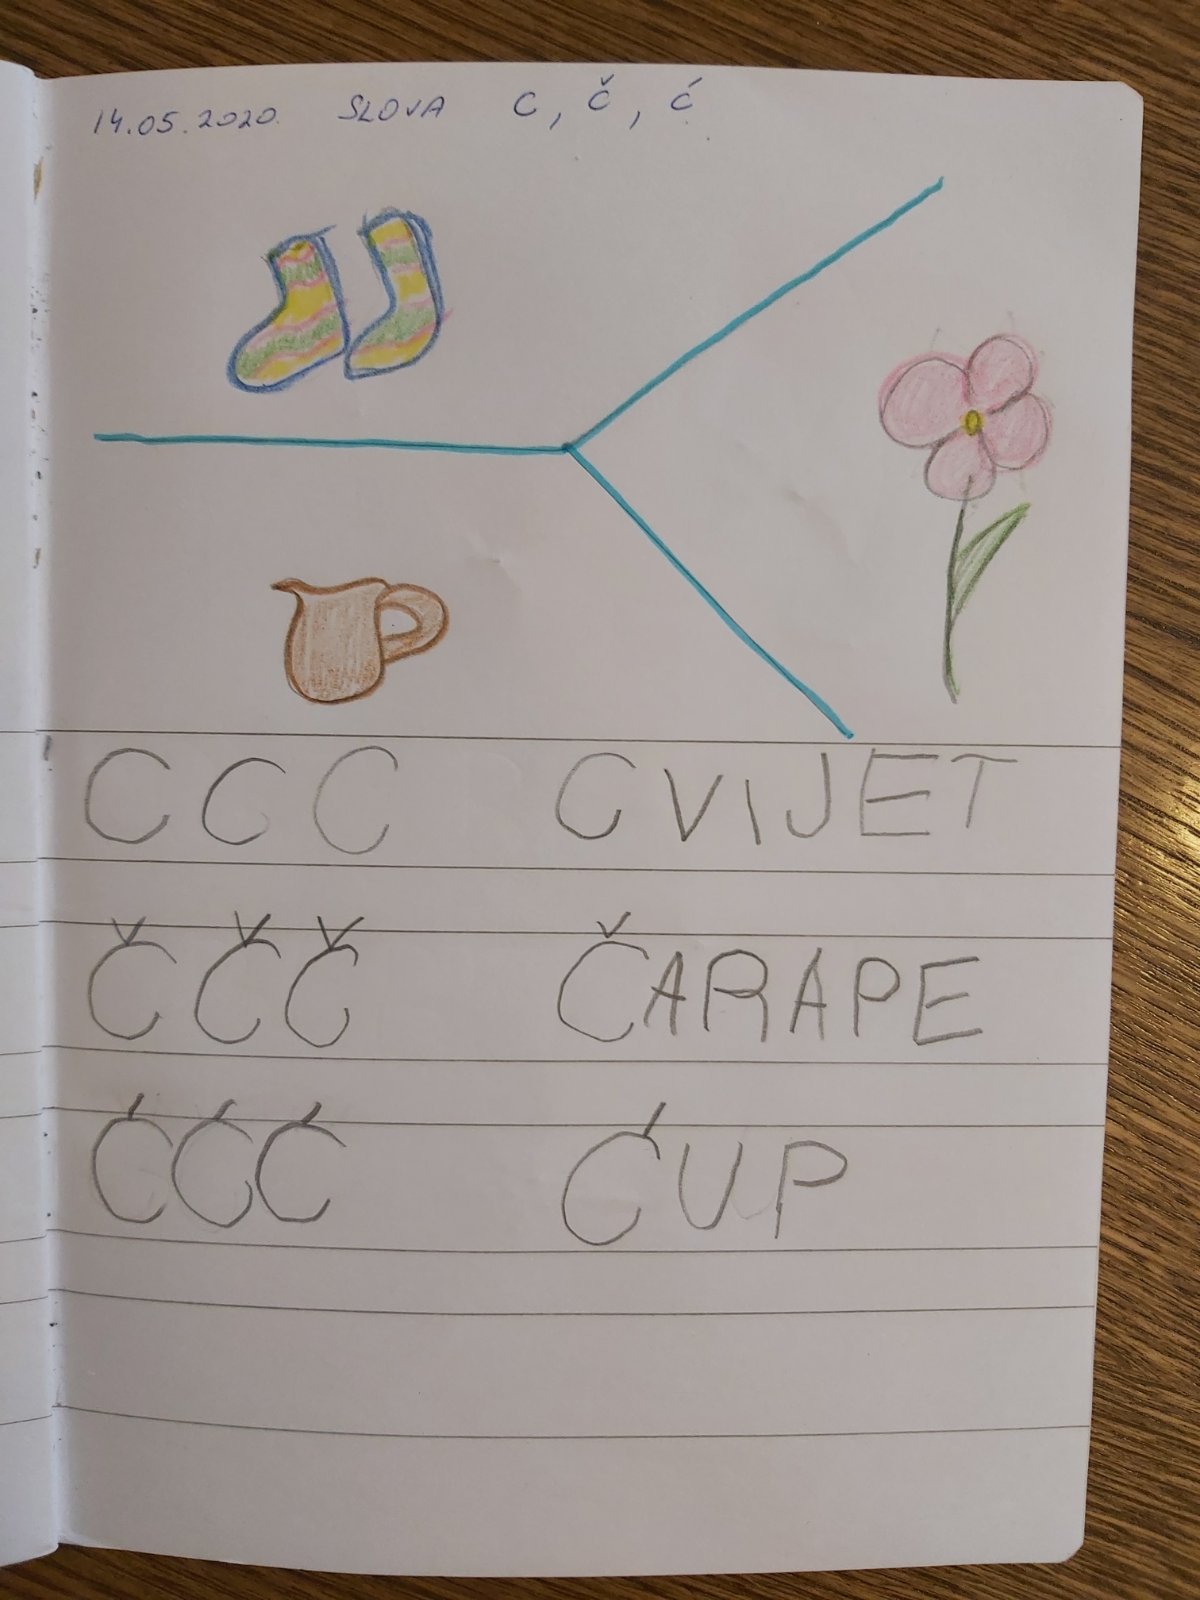 14.05.2020. SLOVA C, Č, Ć
C C C CVIJET
Č Č Č ČARAPE
Ć Ć Ć ĆUP